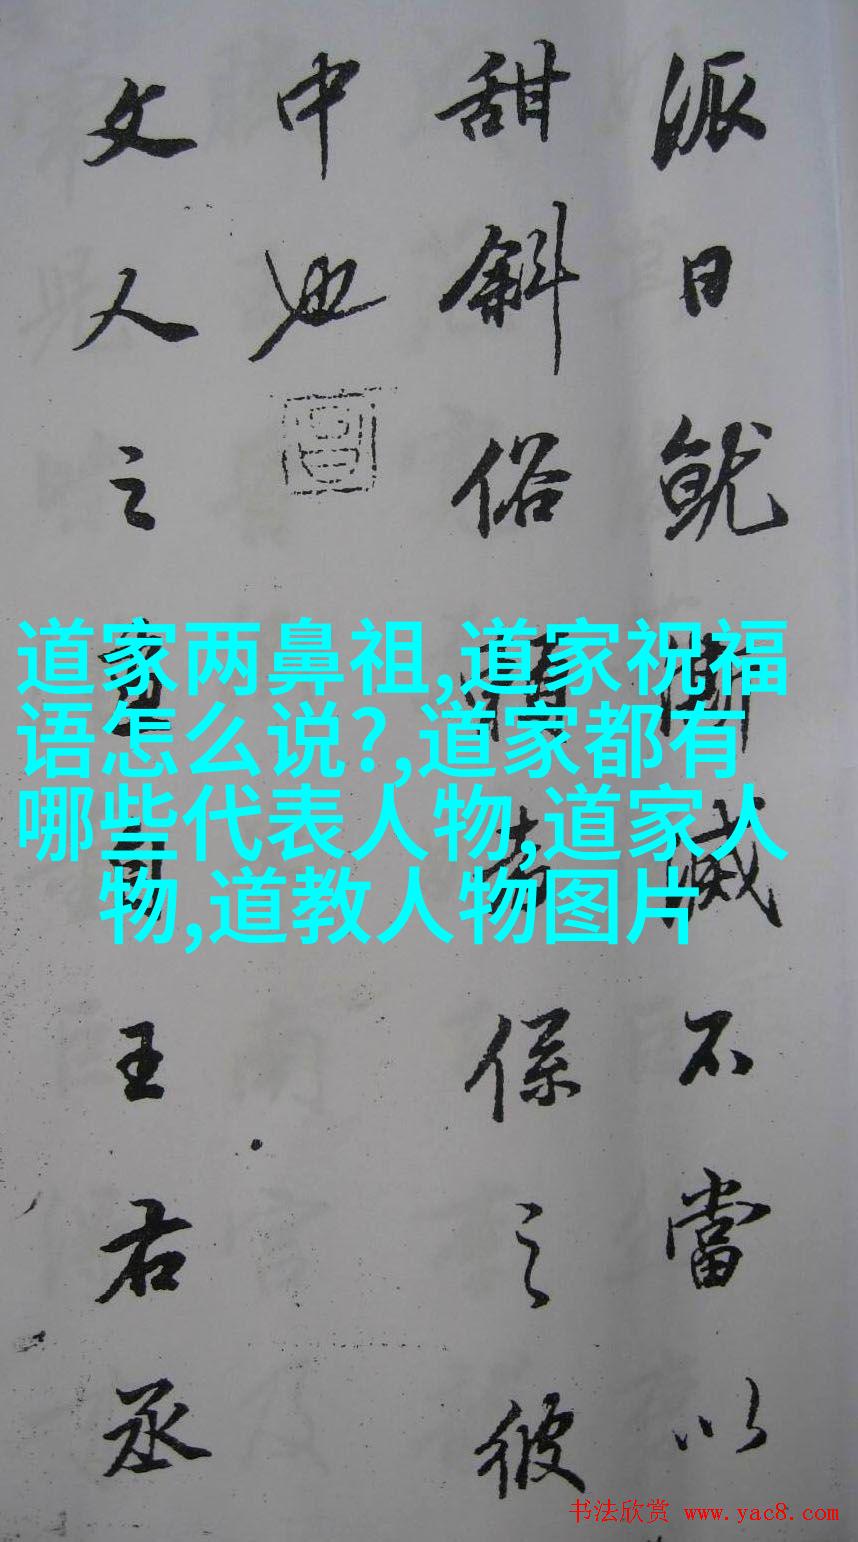 派日就澌滅不當以
甜斜俗賴者係之彼
中也
文人之畫自王右丞
道家两鼻祖,道家祝福
语怎么说?,道家都有
哪些代表人物,道家人
物,道教人物图片
书法欣赏 www.yac8.com